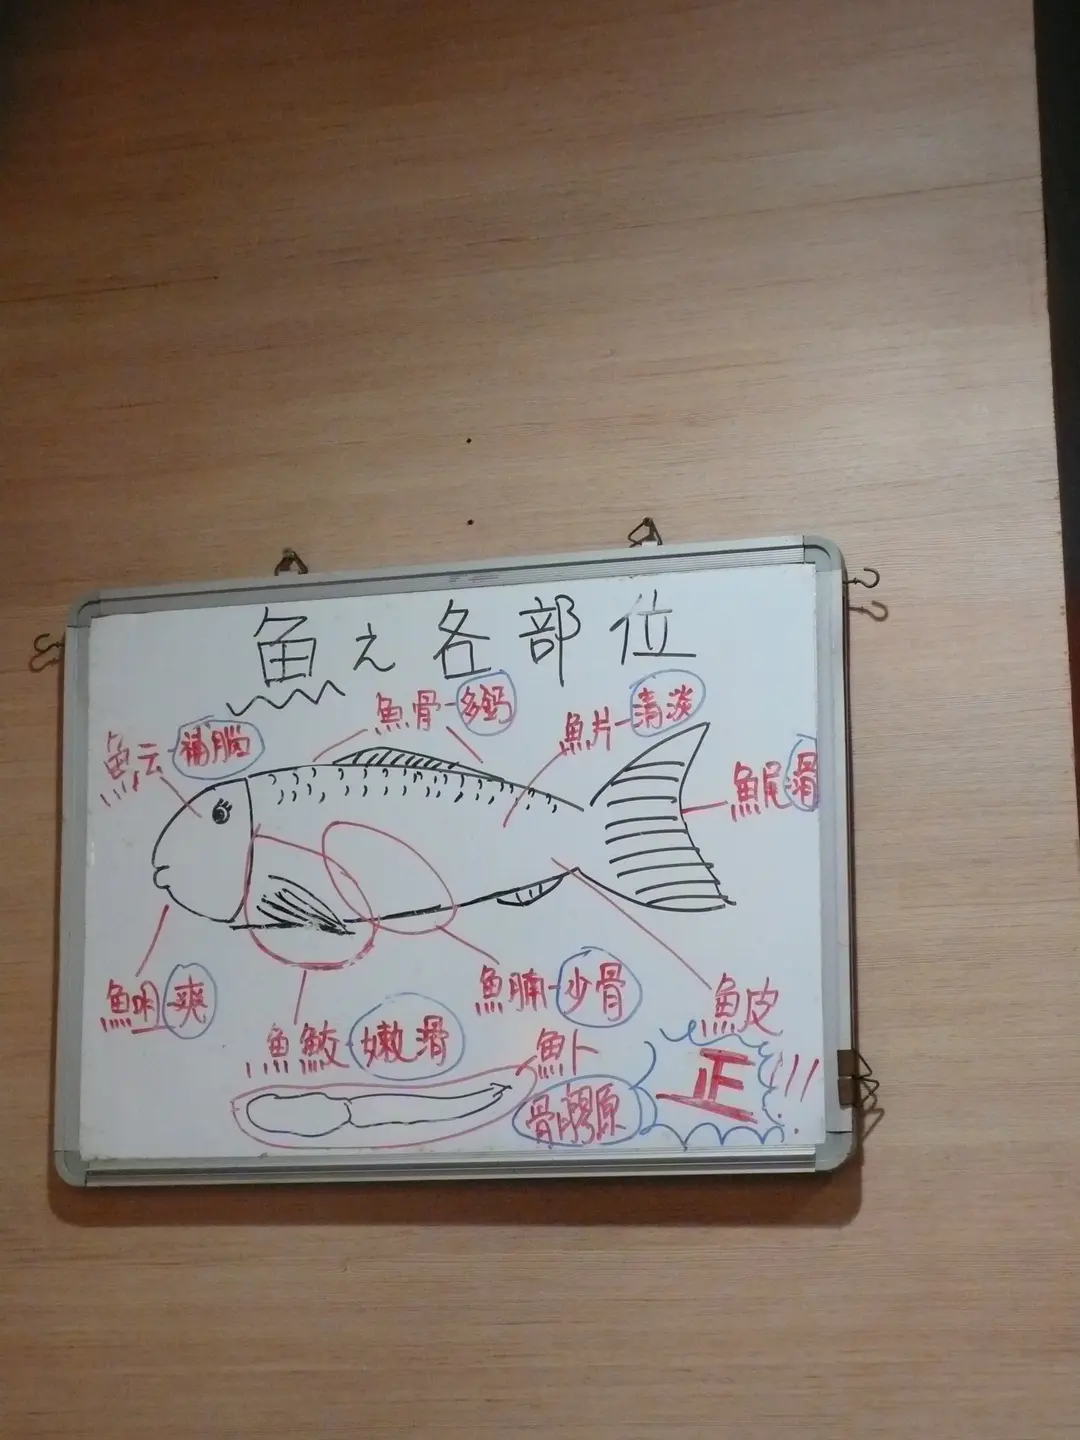 魚之各部位
魚骨-多鈣
魚片-清淡
魚云-補腦
魚尾-滑
魚咀-爽
魚鮫-嫩滑
魚腩-少骨
魚皮
魚卜
骨膠原
正!!!